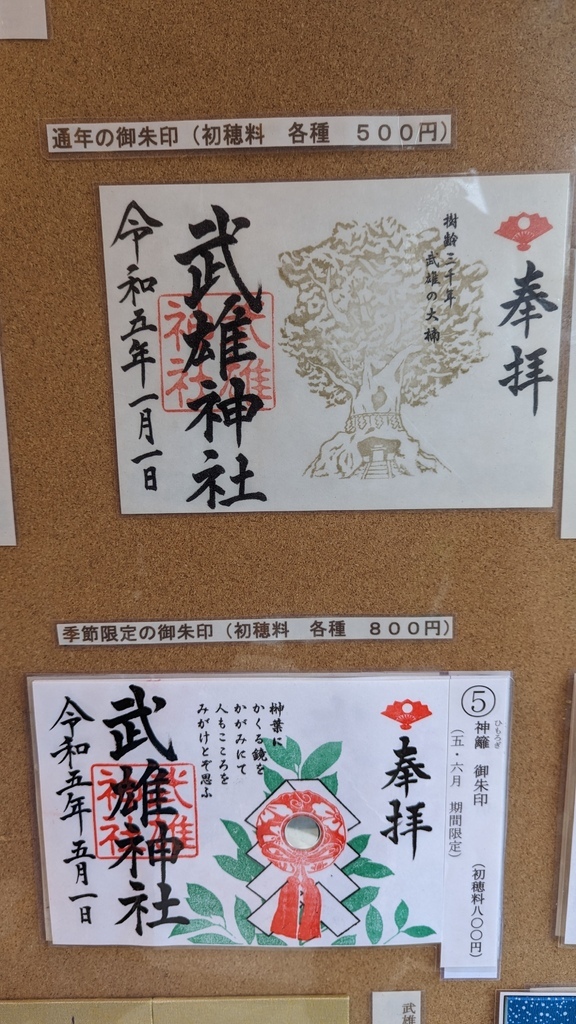 通年の御朱印（初穂料　各種　５００円）
奉拝
樹齢三千年
武雄の大楠
武雄神社
武雄
神社
令和五年一月一日
季節限定の御朱印（初穂料　各種　８００円）
⑤
神籬　御朱印
ひもろぎ
（初穂料八〇〇円）
（五・六月　期間限定）
奉拝
榊葉に
かくる鏡を
かがみにて
人もこころを
みがけとぞ思ふ
武雄神社
武雄
神社
令和五年五月一日
武雄